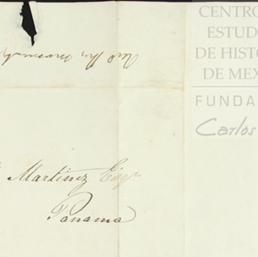 CENTRO
ESTUD
DE HISTO
DE MEX
FUNDA
Carlos
Martinez Esqr
Panama